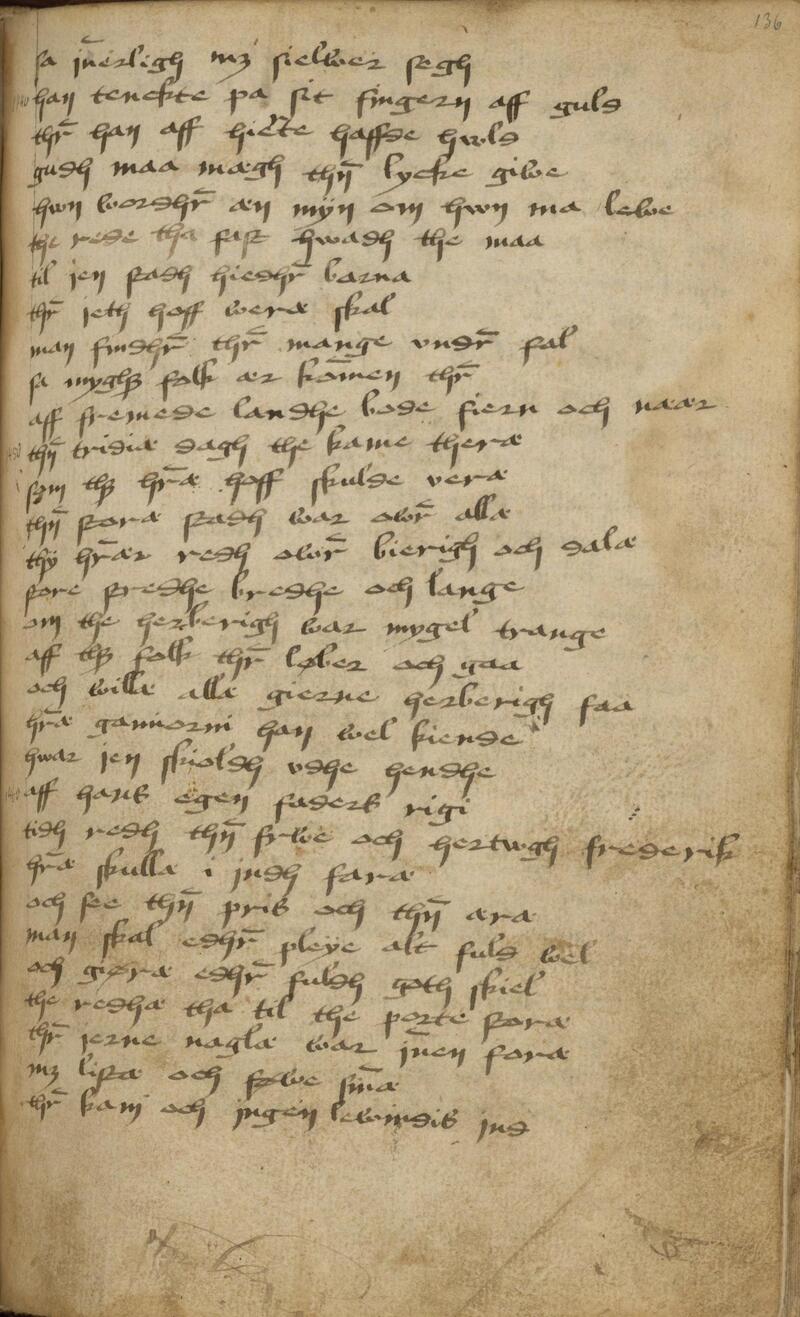 136
sa jn̄erligh mʒ sielwer segh
han tenckte pa sit fingern aff guld
thr̄ han aff hiecte haffde hwld
gudh maa mægh thn̄ lycke giwe
hwn wordhr̄ æn myn om hwn ma lewe
the rede tha fast hwadh the maa
til jen stadh hiedhr̄ barna
thr̄ jeth hoff weræ skal
man findhr̄ thr̄ mange vndr̄ stal
sa myghꝫ folk ær kom̄en thr̄
aff fremede landhe bode fiern och naar
thn̄ tridiæ dagh the kame theræ
som thꝫ hr̄æ hoff skulde veræ
thn̄ storæ stadh war owr̄ allæ
thy hr̄ær redh owr̄ bierigh och dalæ
store stredhe bredhe och lange
om the herberigh war mygel trange
aff thꝫ folk thr̄ løber och gaa
och willæ allæ gierne herberigh faa
hr̄æ gamiorni han wel kiende
hwar jen skioldh vdhe hendhe
aff hans egen faders rigi
tidh redh thn̄ frwe och hertwgh frederik
hr̄æ skullæ i jndh faræ
och see thn̄ pris och thn̄ æræ
man skal edhr̄ pleye alt fuld wel
och giøræ edhr̄ fuldh goth skiel
the redhæ tha til the porte storæ
thr̄ jerne naglæ war jn̄en foræ
mʒ listæ och stwe sm̄a
thr̄ kam och jngen lewindis jnd